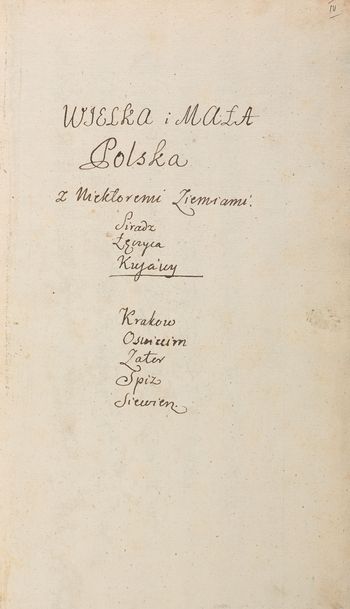 IV
WIELKA i MAŁA
Polska
z Niektoremi Ziemiami.
Siradz
Łęczyca
Kujawy
Krakow
Oswiecim
Zator
Spiż
Siewierz.